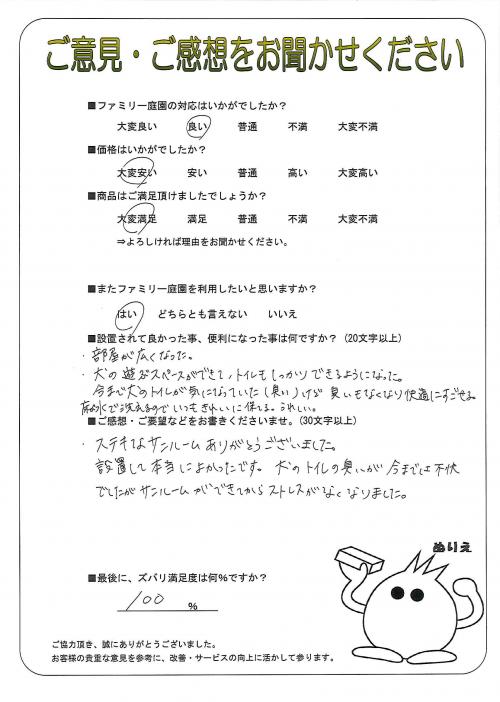 ご意見・ご感想をお聞かせください
■ファミリー庭園の対応はいかがでしたか？
大変良い 良い 普通 不満 大変不満
■価格はいかがでしたか？
大変安い 安い 普通 高い 大変高い
■商品はご満足頂けましたでしょうか？
大変満足 満足 普通 不満 大変不満
⇒よろしければ理由をお聞かせください。
■またファミリー庭園を利用したいと思いますか？
はい どちらとも言えない いいえ
■設置されて良かった事、便利になった事は何ですか？（20文字以上）
・部屋が広くなった。
・犬の遊ぶスペースができて、トイレもしっかりできるようになった。
今まで犬のトイレが気になっていた（臭い）けど臭いもなくなり快適にすごせる。
水で洗えるのでいつもきれいに保てる。うれしい。
■ご感想・ご要望などをお書きくださいませ。（30文字以上）
・ステキなサンルームありがとうございました。
設置して本当によかったです。犬のトイレの臭いが今までは不快
でしたがサンルームができてからストレスがなくなりました。
ぬりえ
■最後に、ズバリ満足度は何％ですか？
100 ％
ご協力頂き、誠にありがとうございました。
お客様の貴重な意見を参考に、改善・サービスの向上に活かして参ります。